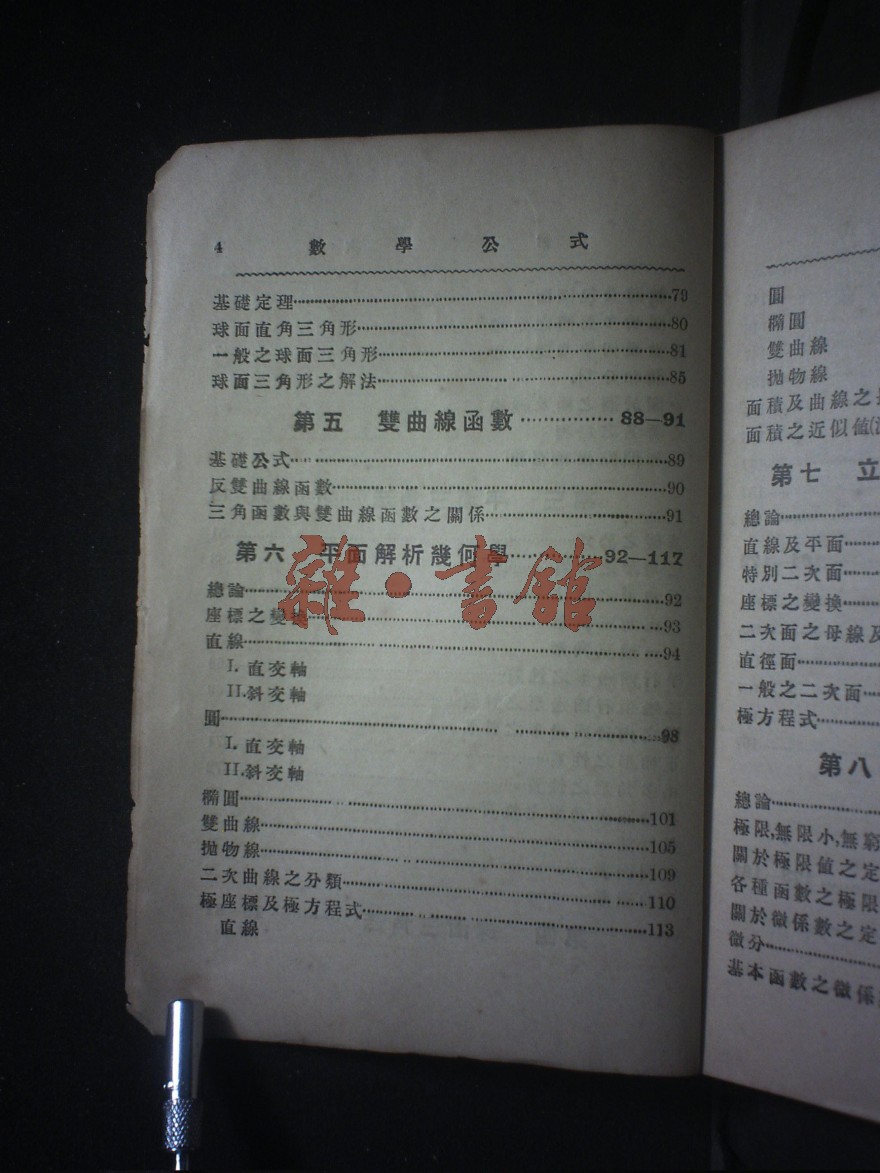 4 數學公式
基礎定理……79
球面直角三角形……80
一般之球面三角形……81
球面三角形之解法……85
第五 雙曲線函數……88—91
基礎公式……89
反雙曲線函數……90
三角函數與雙曲線函數之關係……91
第六 平面解析幾何學……92—117
總論……92
座標之變換……93
直線……94
I. 直交軸
II. 斜交軸
圓……98
I. 直交軸
II. 斜交軸
橢圓……101
雙曲線……105
拋物線……109
二次曲線之分類……110
極座標及極方程式……113
直線
雜·書館
圓
橢圓
雙曲線
拋物線
面積及曲線之
面積之近似値
第七 立
總論……
直線及平面……
特別二次面……
座標之變換……
二次面之母線及
直徑面……
一般之二次面……
極方程式……
第八
總論……
極限,無限小,無窮
關於極限値之定
各種函數之極限
關於微係數之定
微分……
基本函數之微係